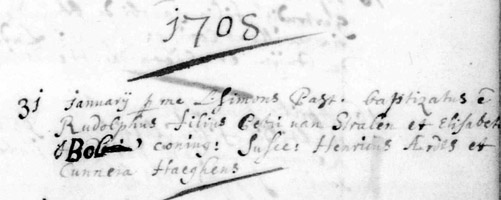 1708
31 januarij p me L Simons Past. baptizatus ē
Rudolphus filius Petri van Stralen et Elisabet
Bol coning: Susce: Henricus Ærdts et
Cunnera Haeghens